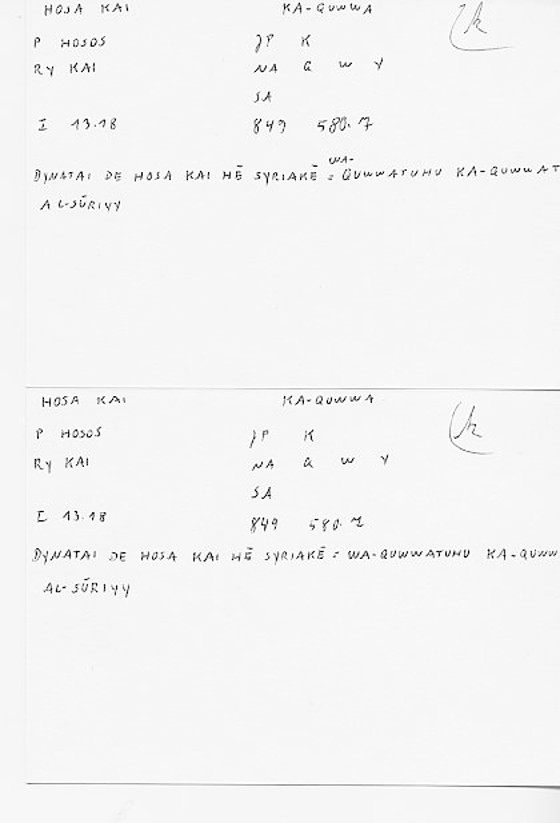 HOSA KAI KA-QUWWA k
P HOSOS JP K
RY KAI NA Q W Y
SA
I 13.18 849 580.7
WA-
DYNATAI DE HOSA KAI HĒ SYRIAKĒ = QUWWATUHU KA-QUWWAT
AL-SŪRIYY
HOSA KAI KA-QUWWA k
P HOSOS JP K
RY KAI NA Q W Y
SA
I 13.18 849 580.7
DYNATAI DE HOSA KAI HĒ SYRIAKĒ = WA-QUWWATUHU KA-QUWW
AL-SŪRIYY